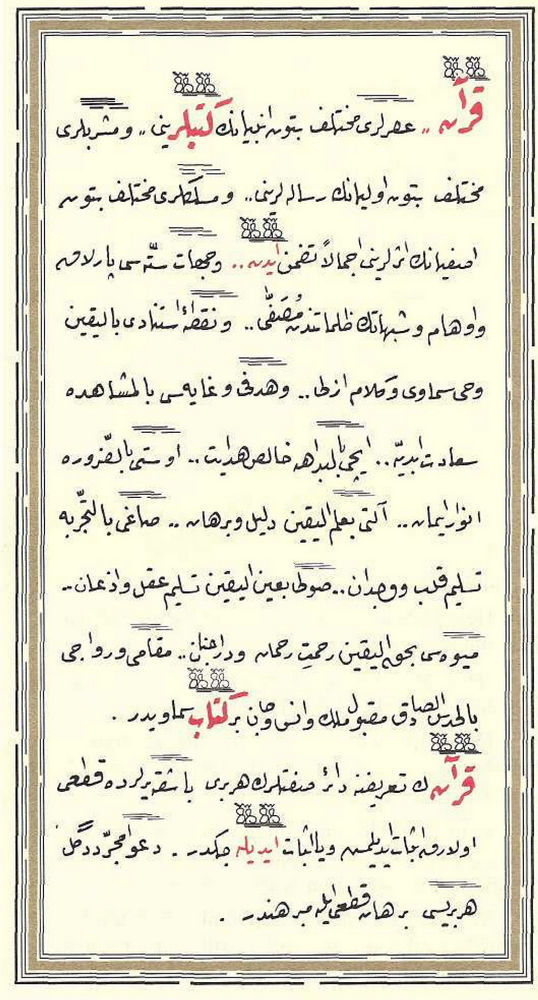 قرآن ,, عصرلری مختلف بتون انبیانك کتبلرینی ,, و مشربلری
مختلف بتون اولیانك رساله‌لرینی.. و مسلکلری مختلف بتون
اصفیانك اثرلرینی اجمالاً تضمن ایدن .. و جهات ستّه سی پارلاق
و اوهام و شبهاتك ظلماتندن مُصَفّٰی .. و نقطۀ استنادی بالیقین
وحی سماوی و کلام ازلی .. و هدفی و غایه سی بالمشاهده
سعادت ابدیّه .. ایچی بالبداهه خالص هدایت .. اوستی بالضّروره
انوار ایمان .. آلتی بعلم الیقین دلیل و برهان .. صاغی بالتّجربه
تسلیم قلب و وجدان .. صولی بعین الیقین تسخیر عقل و اذعان ..
میوه سی بحق الیقین رحمت رحمان و دار جنان .. مقامی و رواجی
بالحدس الصادق مقبول ملك و انس و جان بر کتاب سماویدر .
قرآن ك تعریفنه دائر صفتلرك هربری باشقه یرلرده قطعی
اولارق اثبات ایدیلمش ویا اثبات ایدیله جکدر . دعوا مجرّد دگل
هربریسی برهان قطعی ایله مبرهندر .